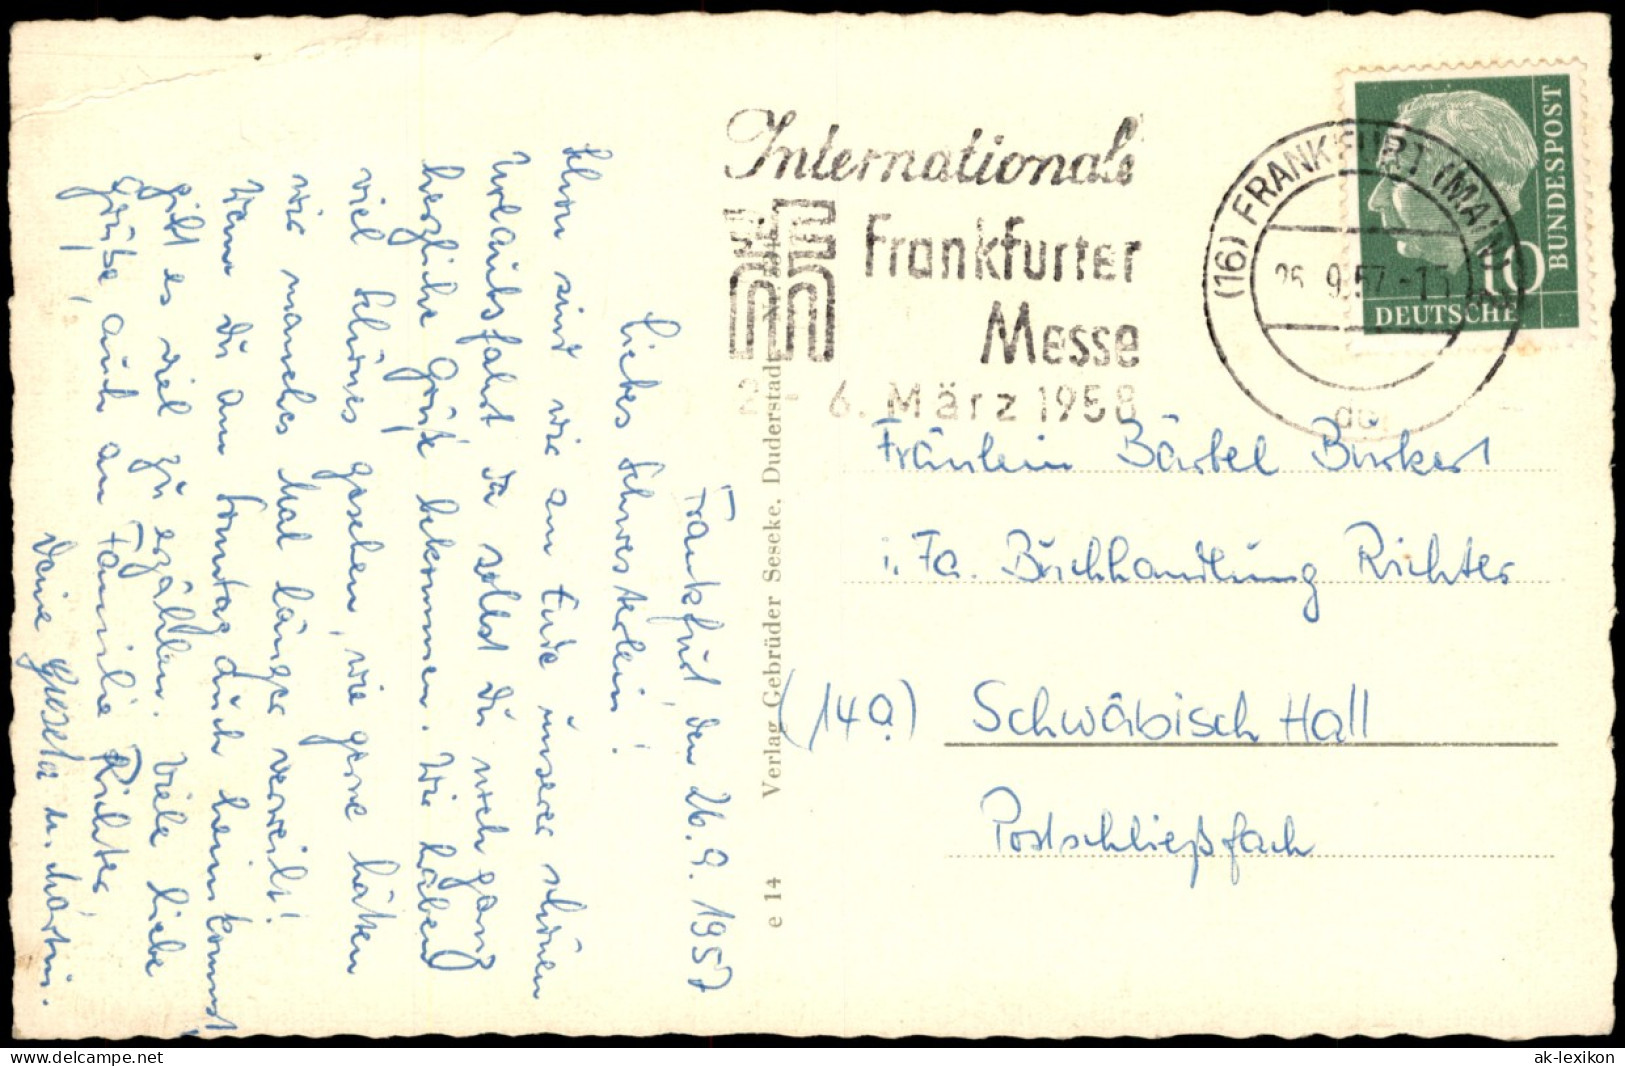 Frankfurt, den 26. 9. 1957
Liebes Schwesterlein!
Schon sind wir am Ende unserer schönen
Urlaubsfahrt da sollst Du noch ganz
herzliche Grüße bekommen. Wir haben
viel schönes gesehen, wie gerne hätten
wir manches Mal länger verweilt!
Wenn Du am Sonntag auch heimkommst
gibt es viel zu erzählen. Viele liebe
Grüße, auch an Familie Richter,
Deine Guseta u. Martin.
Verlag Gebrüder Seseke, Duderstadt
e 14
Internationale
Frankfurter
Messe
2. - 6. März 1958
(16) FRANKFURT (MAIN)
26. 9. 57 - 15
DEUTSCHE
BUNDESPOST
10
Fräulein Bärbel Burkert
i. Fa. Buchhandlung Richter
(14a) Schwäbisch Hall
Postschließfach
ak-lexikon